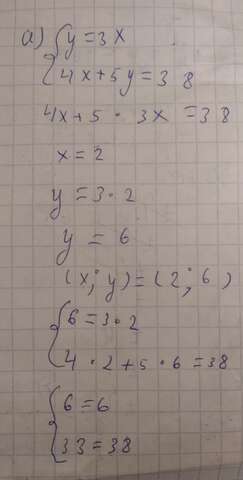 а) { y = 3x
4x + 5y = 38
4x + 5 · 3x = 38
x = 2
y = 3 · 2
y = 6
(x; y) = (2; 6)
{ 6 = 3 · 2
4 · 2 + 5 · 6 = 38
{ 6 = 6
33 = 38